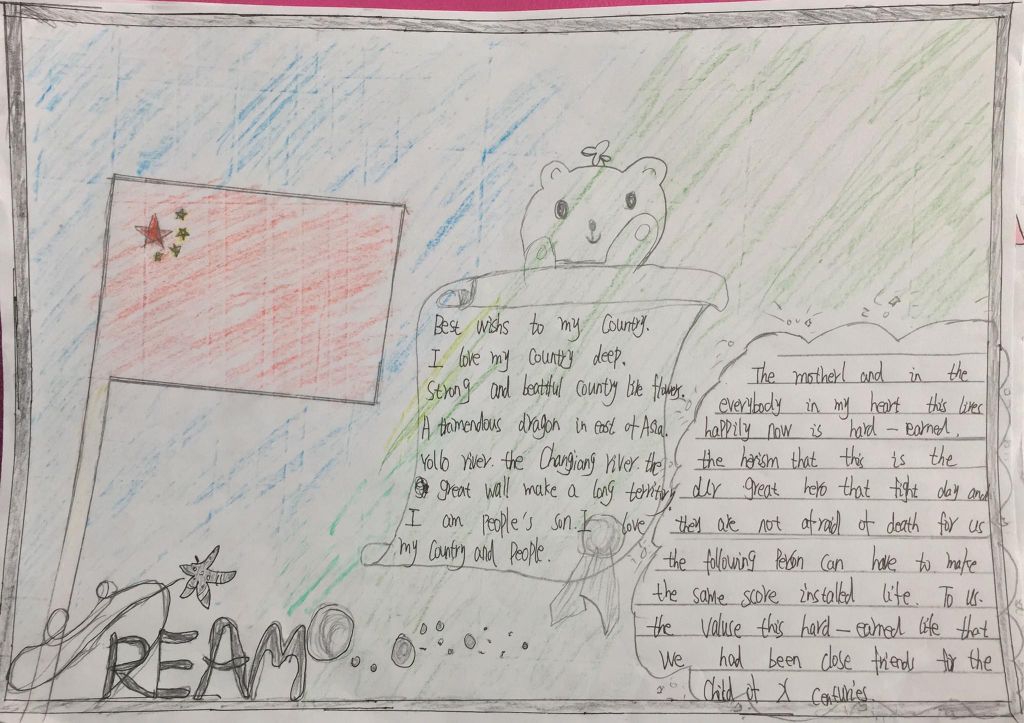 Best wishs to my Country.
I love my Country deep.
Strong and beatiful country like flower.
A tramendous dragon in east of Asia.
rollo river. the Changiang river. the
great wall make a long territory
I am people's son. I love
my Country and People.
The motherl and in the
everybody in my heart this lives
happily now is hard-earned.
the herism that this is the
our great hero that fight day and
they are not afraid of death for us
the following Person can have to make
the same score installed life. To us.
the valuse this hard-earned life that
We had been close friends for the
Child of X Centuries.
DREAM